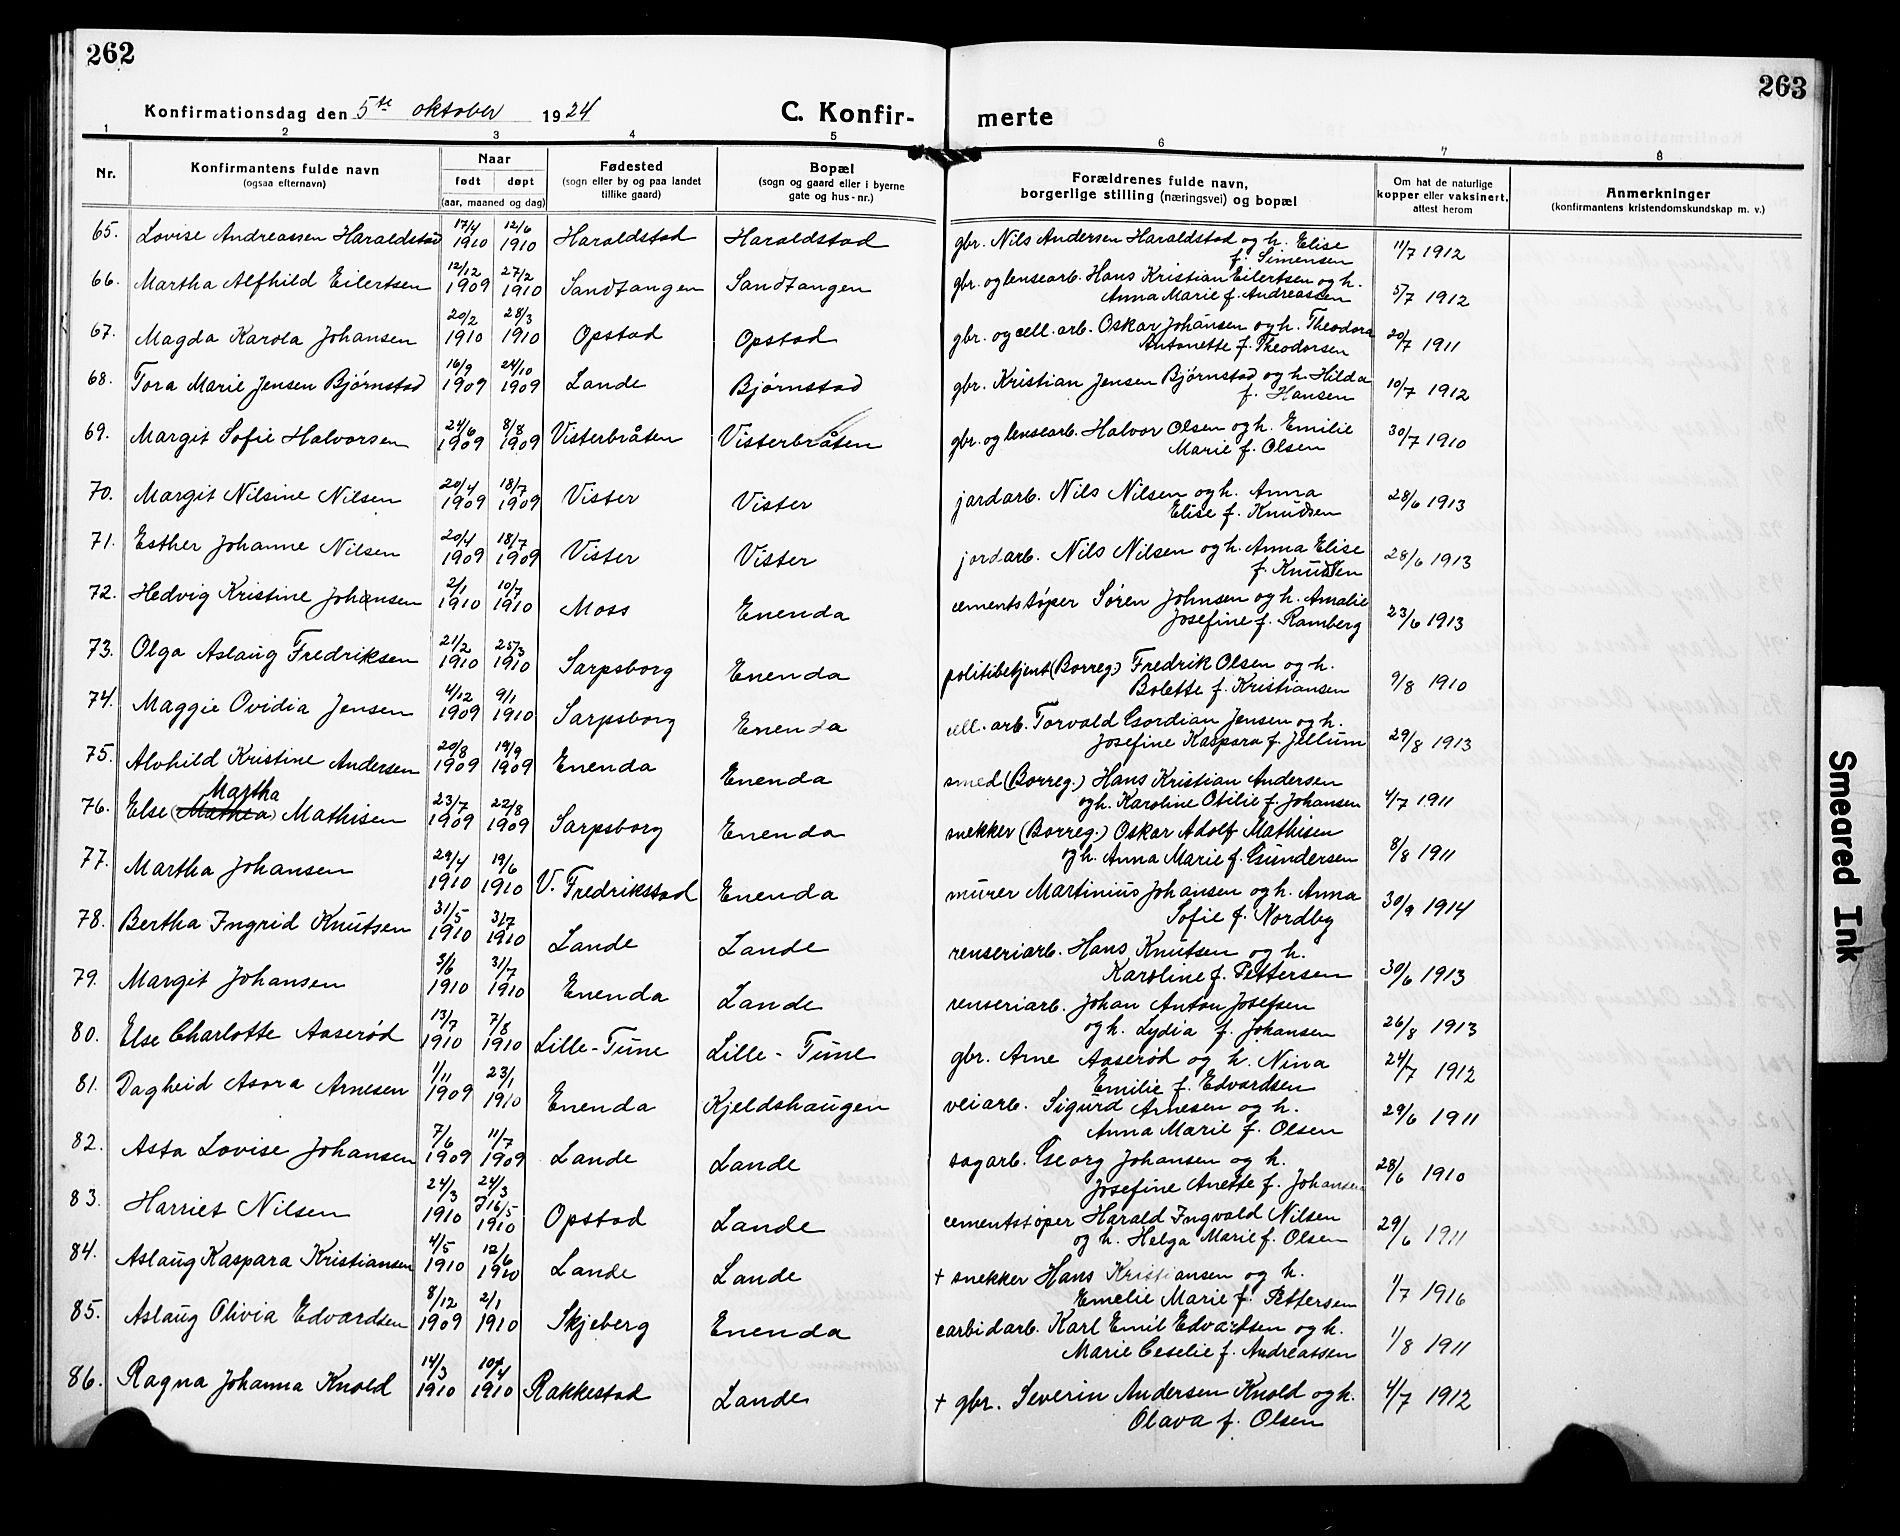 262
263
Konfirmationsdag den 5te oktober 1924
C. Konfir- merte
1 2 3 4 5 6 7 8
Nr.
Konfirmantens fulde navn
(ogsaa efternavn)
Naar
født døpt
(aar, maaned og dag)
Fødested
(sogn eller by og paa landet
tillike gaard)
Bopæl
(sogn og gaard eller i byerne
gate og hus-nr.)
Forældrenes fulde navn,
borgerlige stilling (næringsvei) og bopæl
Om hat de naturlige
kopper eller vaksinert,
attest herom
Anmerkninger
(konfirmantens kristendomskundskap m. v.)
65. Lovise Andreassen Haraldstad 17/4 1910 12/6 1910 Haraldstad Haraldstad gbr. Nils Andersen Haraldstad og h. Elise
f. Simensen 11/7 1912
66. Martha Alfhild Eilertsen 12/12 1909 27/2 1910 Sandtangen Sandtangen gbr. og lensearb. Hans Kristian Eilertsen og h.
Anna Marie f. Andreassen 5/7 1912
67. Magda Karola Johansen 20/2 1910 28/3 1910 Opstad Opstad gbr. og cell. arb. Oskar Johansen og h. Theodora
Antonette f. Theodorsen 20/7 1911
68. Tora Marie Jensen Bjørnstad 16/9 1909 24/10 1909 Lande Bjørnstad gbr. Kristian Jensen Bjørnstad og h. Hilda
f. Hansen 10/7 1912
69. Margit Sofie Halvorsen 24/6 1909 8/8 1909 Visterbråten Visterbråten gbr. og lensearb. Halvor Olsen og h. Emilie
Marie f. Olsen 30/7 1910
70. Margit Nilsine Nilsen 20/4 1909 18/7 1909 Vister Vister jordarb. Nils Nilsen og h. Anna
Elise f. Knudsen 28/6 1913
71. Esther Johanne Nilsen 20/4 1909 18/7 1909 Vister Vister jordarb. Nils Nilsen og h. Anna Elise
f. Knudsen 28/6 1913
72. Hedvig Kristine Johansen 2/1 1910 10/7 1910 Moss Enenda cementstøper Søren Johnsen og h. Amalie
Josefine f. Ramberg 23/6 1913
73. Olga Aslaug Fredriksen 21/2 1910 25/3 1910 Sarpsborg Enenda politibetjent (Borreg.) Fredrik Olsen og h.
Bolette f. Kristiansen 9/8 1910
74. Maggie Ovidia Jensen 4/12 1909 9/1 1910 Sarpsborg Enenda cell. arb. Torvald Gordian Jensen og h.
Josefine Kaspara f. Jellum 29/8 1913
75. Alvhild Kristine Andersen 20/8 1909 19/9 1909 Enenda Enenda smed (Borreg.) Hans Kristian Andersen
og h. Karoline Otilie f. Johansen 4/7 1911
Martha
76. Else (Mathea) Mathisen 23/7 1909 22/8 1909 Sarpsborg Enenda snekker (Borreg.) Oskar Adolf Mathisen
og h. Anna Marie f. Gundersen 8/8 1911
77. Martha Johansen 29/4 1910 19/6 1910 V. Fredrikstad Enenda murer Martinius Johansen og h. Anna
Sofie f. Nordby 30/9 1914
78. Bertha Ingrid Knutsen 31/5 1910 3/7 1910 Lande Lande renseriarb. Hans Knutsen og h.
Karoline f. Pettersen 30/6 1913
79. Margit Johansen 3/6 1910 31/7 1910 Enenda Lande renseriarb. Johan Anton Josefsen
og h. Lydia f. Johansen 26/8 1913
80. Else Charlotte Aaserød 13/7 1910 7/8 1910 Lille-Tune Lille-Tune gbr. Arne Aaserød og h. Nina
Emilie f. Edvardsen 24/7 1912
81. Dagheid Asora Arnesen 1/11 1909 23/1 1910 Enenda Kjeldshaugen veiarb. Sigurd Arnesen og h.
Anna Marie f. Olsen 29/6 1911
82. Asta Lovise Johansen 7/6 1909 11/7 1909 Lande Lande sagarb. Georg Johansen og h.
Josefine Anette f. Johansen 28/6 1910
83. Harriet Nilsen 24/3 1910 24/3 16/5 1910 Opstad Lande cementstøper Harald Ingvald Nilsen
og h. Helga Marie f. Olsen 29/6 1911
84. Aslaug Kaspara Kristiansen 4/5 1910 12/6 1910 Lande Lande + snekker Hans Kristiansen og h.
Emelie Marie f. Pettersen 1/7 1916
85. Aslaug Olivia Edvardsen 8/12 1909 2/1 1910 Skjeberg Enenda carbidarb. Karl Emil Edvartsen og h.
Marie Ceselie f. Andreassen 1/8 1911
86. Ragna Johanna Knold 14/3 1910 10/4 1910 Rakkestad Lande + gbr. Severin Andersen Knold og h.
Olava f. Olsen 4/7 1912
Smeared Ink